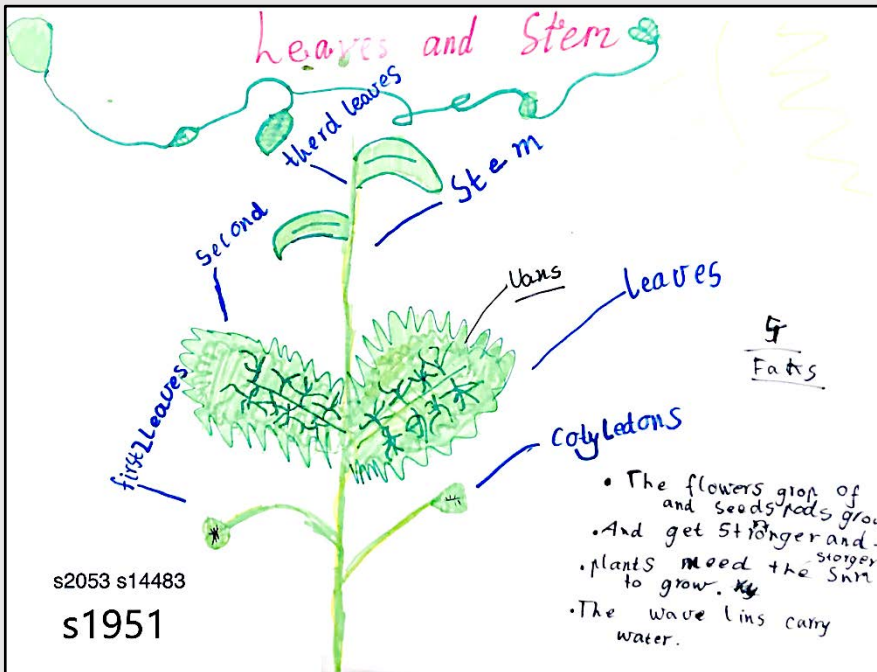 Leaves and Stem
therd leaves
Stem
second
Vans
leaves
5
Faks
first 2 leaves
Cotyledons
• The flowers grop of
and seeds pods grou
• And get stronger and
storger
• plants need the Sun
to grow.
• The wave lins carry
water.
s2053 s14483
s1951